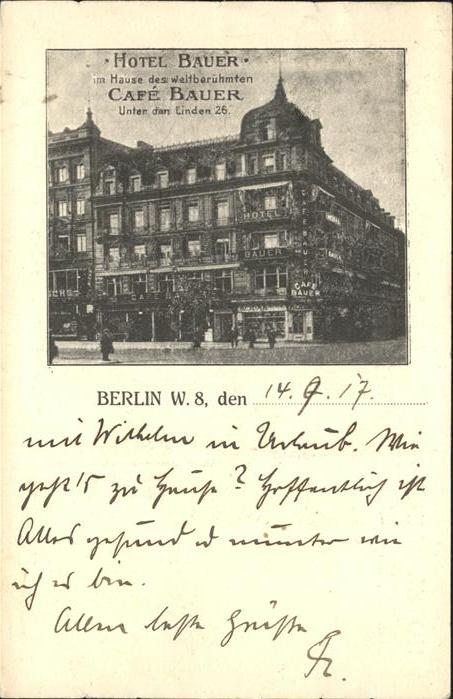 · HOTEL BAUER ·
im Hause des weltberühmten
CAFÉ BAUER
Unter den Linden 26.
HOTEL
BAUER
CAFÉ BAUER
CAFÉ
BAUER
BERLIN W. 8, den 14. 9. 17.
mit Wilhelm in Urlaub. Wie
geht's zu Hause? Hoffentlich ist
Alles gesund u munter wie
ich es bin.
Allen beste Grüße
Fr.